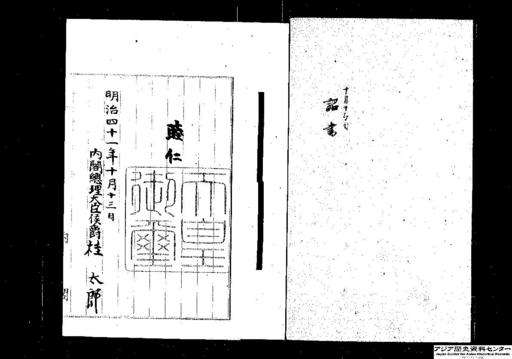 十月十三日
詔書
睦仁
天皇
御璽
明治四十一年十月十三日
内閣總理大臣侯爵桂太郎
内
閣
アジア歴史資料センター
Japan Center for Asian Historical Records